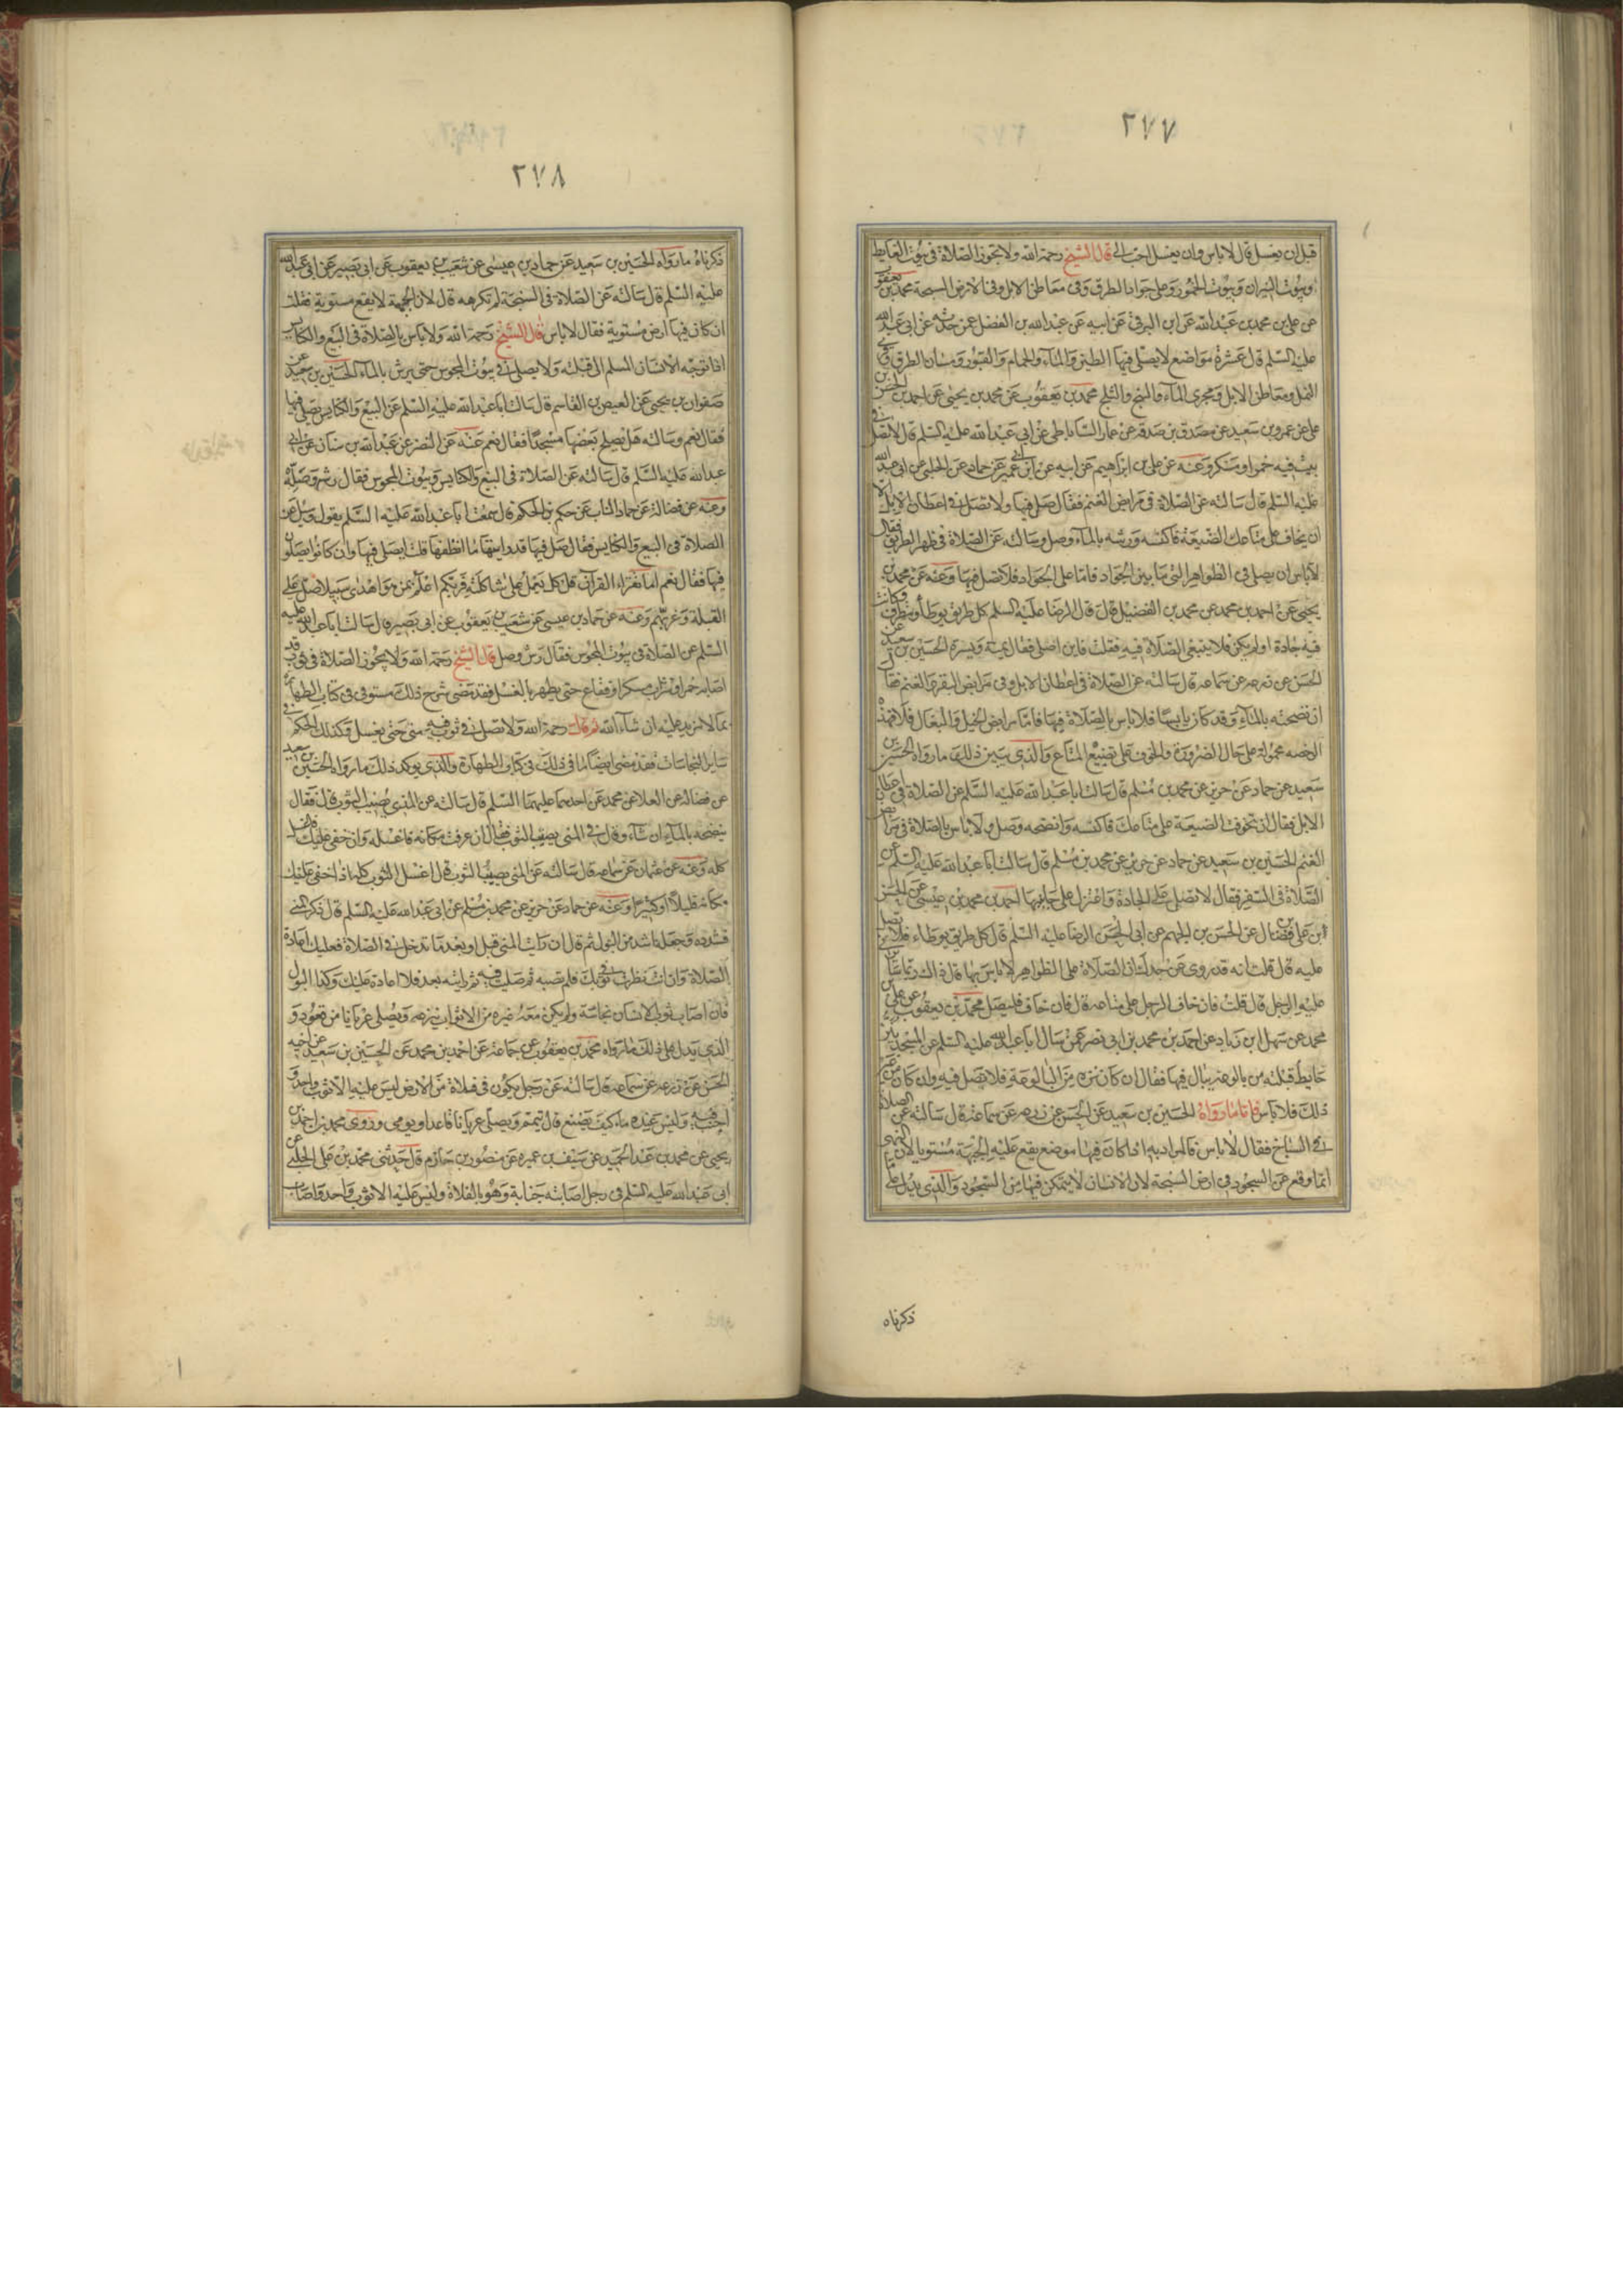 ٢٧٧
قبل ان يغسل قال لا باس وان يغسل احب الي قال الشيخ رحمه الله ولا تجوز الصلاة في بيوت الغايط
وبيوت النيران وبيوت الخمور وعلى جواد الطرق وفي معاطن الابل وفي الارض السبخة محمد بن يعقوب
عن علي بن محمد بن عبد الله عن ابن البرقي عن ابيه عن عبد الله بن الفضل عن حدثه عن ابي عبد الله
عليه السلم قال عشرة مواضع لا يصلى فيها الطين والماء والحمام والقبور ومسان الطرق وقرى
النمل ومعاطن الابل ومجرى الماء والسبخ والثلج محمد بن يعقوب عن محمد بن يحيى عن احمد بن الحسن بن
علي عن عمرو بن سعيد عن مصدق بن صدقة عن عمار الساباطي عن ابي عبد الله عليه السلم قال لا تصل في
بيت فيه خمر او مسكر وعنه عن علي بن ابراهيم عن ابيه عن ابن ابي عمير عن حماد عن الحلبي عن ابي عبد الله
عليه السلم قال سالته عن الصلاة في مرابض الغنم فقال صل فيها ولا تصل في اعطان الابل الا
ان تخاف على متاعك الضيعة فاكنسه ورشه بالماء وصل وسالته عن الصلاة في ظهر الطريق فقال
لا باس ان يصلى في الظواهر التي ما بين الجواد فاما على الجواد فلا تصل فيها وعنه عن محمد بن
يحيى عن احمد بن محمد عن محمد بن الفضيل قال قال الرضا عليه السلم كل طريق يوطا ويتطرق وكانت
فيه جادة او لم يكن فلا ينبغي الصلاة فيه فقلت فاين اصلي فقال يمنة ويسرة الحسين بن سعيد عن
الحسن عن زرعه عن سماعه قال سالته عن الصلاة في اعطان الابل وفي مرابض البقر والغنم فقال
ان نضحته بالماء وقد كان يابسا فلا باس بالصلاة فيها فاما مرابض الخيل والبغال فلا فهذه
الرخصه محموله على حال الضرورة والخوف على تضييع المتاع والذي يبين ذلك ما رواه الحسين بن
سعيد عن حماد عن حريز عن محمد بن مسلم قال سالت ابا عبد الله عليه السلم عن الصلاة في اعطان
الابل فقال ان تخوفت الضيعة على متاعك فاكنسه وانضحه وصل ولا باس بالصلاة في مرابض
الغنم الحسين بن سعيد عن حماد عن حريز عن محمد بن مسلم قال سالت ابا عبد الله عليه السلم عن
الصلاة في السفر فقال لا تصل على الجادة واعتزل على جانبيها احمد بن محمد بن عيسى عن الحسن
ابن علي بن فضال عن الحسن بن الجهم عن ابي الحسن الرضا عليه السلم قال كل طريق يوطاء فلا تصل
عليه قال قلت انه قد روي عن جدك ان الصلاة على الظواهر لا باس بها قال ذاك ربما
عليه الرجل قال قلت فان خاف الرجل على متاعه قال فان خاف فليصل محمد بن يعقوب عن علي بن
محمد عن سهل ابن زياد عن احمد بن محمد بن ابي نصر عمن سال ابا عبد الله عليه السلم عن المسجد ينز
حايط قبلته من بالوعة يبال فيها فقال ان كان نزه من البالوعة فلا تصل فيه وان كان من غير
ذلك فلا باس فاما ما رواه الحسين بن سعيد عن الحسن عن زرعه عن سماعة قال سالته عن الصلاة
في السباخ فقال لا باس فالمراد به اذا كان فيها موضع يقع عليه الجبهة مستويا لان النهي
انما وقع عن السجود في ارض السبخة لان الانسان لا يتمكن فيها من السجود والذي يدل على ما
ذكرناه
٢٧٨
ذكرناه ما رواه الحسين بن سعيد عن حماد بن عيسى عن شعيب بن يعقوب عن ابي بصير عن ابي عبد الله
عليه السلم قال سالته عن الصلاة في السبخة لم تكرهه قال لان الجبهة لا يقع مستوية فقلت
ان كان فيها ارض مستوية فقال لا باس قال الشيخ رحمه الله ولا باس بالصلاة في البيع والكنايس
اذا توجه الانسان المسلم الى قبلته ولا يصلى في بيوت المجوس حتى يرش بالماء الحسين بن سعيد عن
صفوان بن يحيى عن العيص بن القاسم قال سالت ابا عبد الله عليه السلم عن البيع والكنايس يصلى فيها
فقال نعم وسالته هل يصلح بعضها مسجدا فقال نعم عنه عن النضر عن عبد الله بن سنان عن ابي
عبد الله عليه السلم قال سالته عن الصلاة في البيع والكنايس وبيوت المجوس فقال رش وصله
وعنه عن فضالة عن حماد الناب عن حكم بن الحكم قال سمعت ابا عبد الله عليه السلم يقول وسئل عن
الصلاة في البيع والكنايس فقال صل فيها قد رايتها ما انظفها قلت ايصلى فيها وان كانوا يصلون
فيها فقال نعم اما تقراء القرآن قل كل يعمل على شاكلته فربكم اعلم بمن هو اهدى سبيلا صل على
القبلة وغربهم وعنه عن حماد بن عيسى عن شعيب بن يعقوب عن ابي بصير قال سالت ابا عبد الله عليه
السلم عن الصلاة في بيوت المجوس فقال رش وصل قال الشيخ رحمه الله ولا يجوز الصلاة في ثوب قد
اصابه خمر او شراب مسكر او فقاع حتى يطهر بالغسل فقد مضى شرح ذلك مستوفى في كتاب الطهارة
بما لا مزيد عليه ان شاء الله ثم قال رحمه الله ولا تصل في ثوب فيه مني حتى يغسل وكذلك الحكم في
ساير النجاسات فقد مضى ايضا ما في ذلك في كتاب الطهارة والذي يوكد ذلك ما رواه الحسين بن سعيد
عن فضالة عن العلا عن محمد عن احدهما عليهما السلم قال سالته عن المذي يصيب الثوب قال فقال
ينضحه بالماء ان شاء وقال في المني يصيب الثوب فقال ان عرفت مكانه فاغسله وان خفي عليك فاغسله
كله وعنه عن عثمان عن سماعه قال سالته عن المني يصيب الثوب قال اغسل الثوب كله اذا خفي عليك
مكانه قليلا او كثيرا وعنه عن حماد عن حريز عن محمد بن مسلم عن ابي عبد الله عليه السلم قال ذكر المني
فشدده وجعله اشد من البول ثم قال ان رايت المني قبل او بعد ما تدخل في الصلاة فعليك اعادة
الصلاة وان انت نظرت في ثوبك فلم تصبه ثم صليت فيه ثم رايته بعد فلا اعادة عليك وكذا البول
فان اصاب ثوب الانسان نجاسة ولم يكن معه غيره من الاثواب نزعه ويصلي عريانا من قعود و
الذي يدل على ذلك ما رواه محمد بن يعقوب عن جماعة عن احمد بن محمد عن الحسين بن سعيد عن اخيه
الحسن عن زرعه عن سماعه قال سالته عن رجل يكون في فلاة من الارض ليس عليه الا ثوب واحد و
اجنب فيه وليس عنده ماء كيف يصنع قال يتيمم ويصلي عريانا قاعدا ويومي وروى محمد بن احمد بن
يحيى عن محمد بن عبد الحميد عن سيف بن عميره عن منصور بن حازم قال حدثني محمد بن علي الحلبي عن
ابي عبد الله عليه السلم في رجل اصابته جنابة وهو بالفلاة وليس عليه الا ثوب واحد واصاب